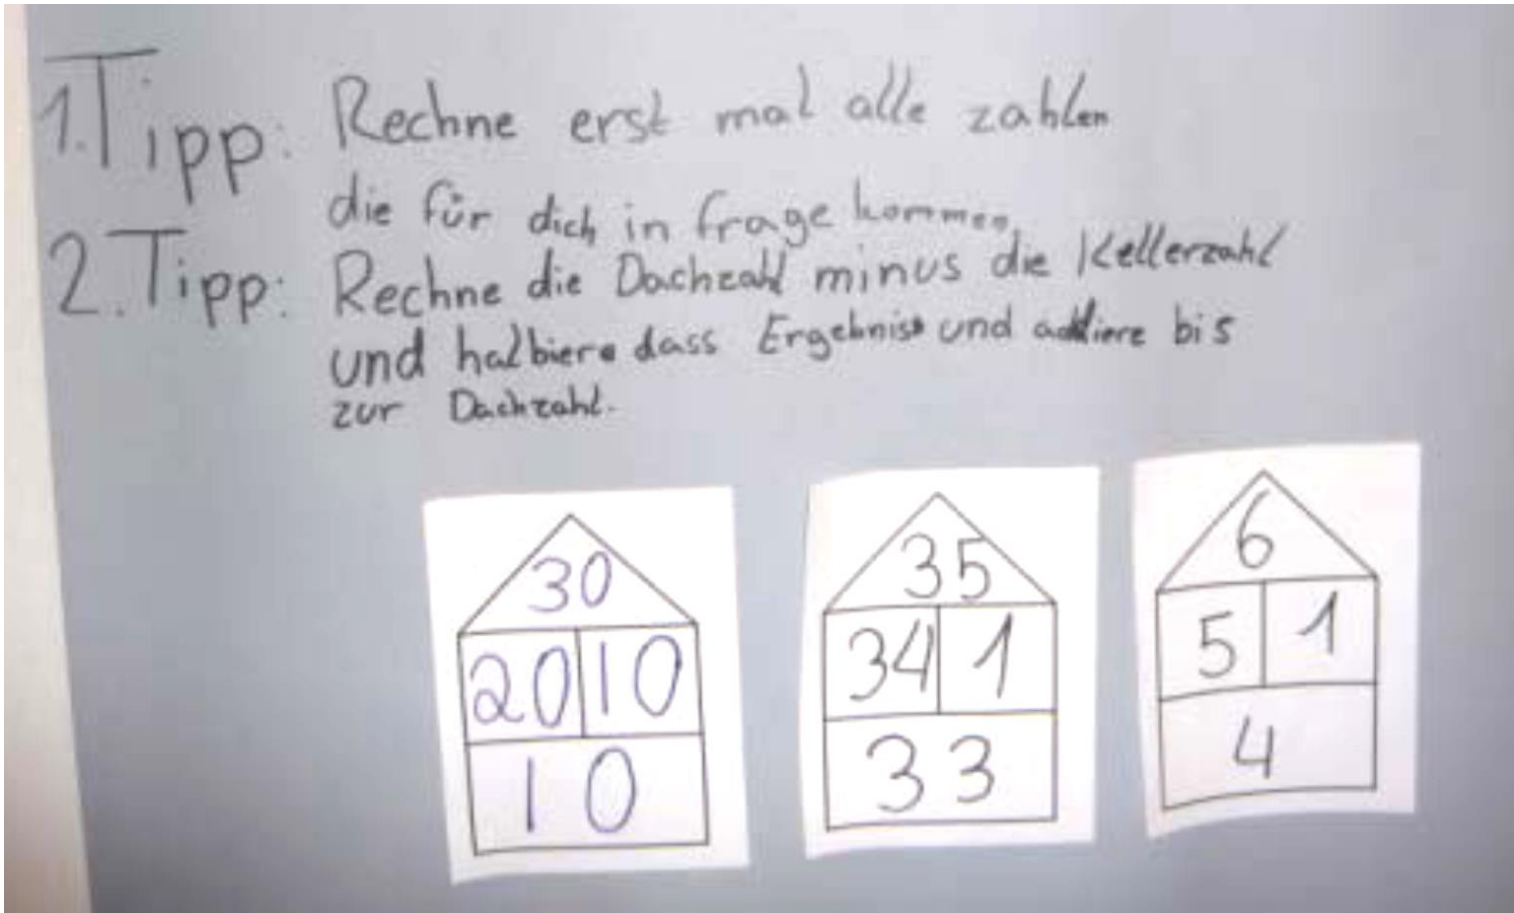 1. Tipp: Rechne erst mal alle zahlen
die für dich in frage kommen.
2. Tipp: Rechne die Dachzahl minus die Kellerzahl
und halbiere dass Ergebniss und addiere bis
zur Dachzahl.
30
20 10
10
35
34 1
33
6
5 1
4